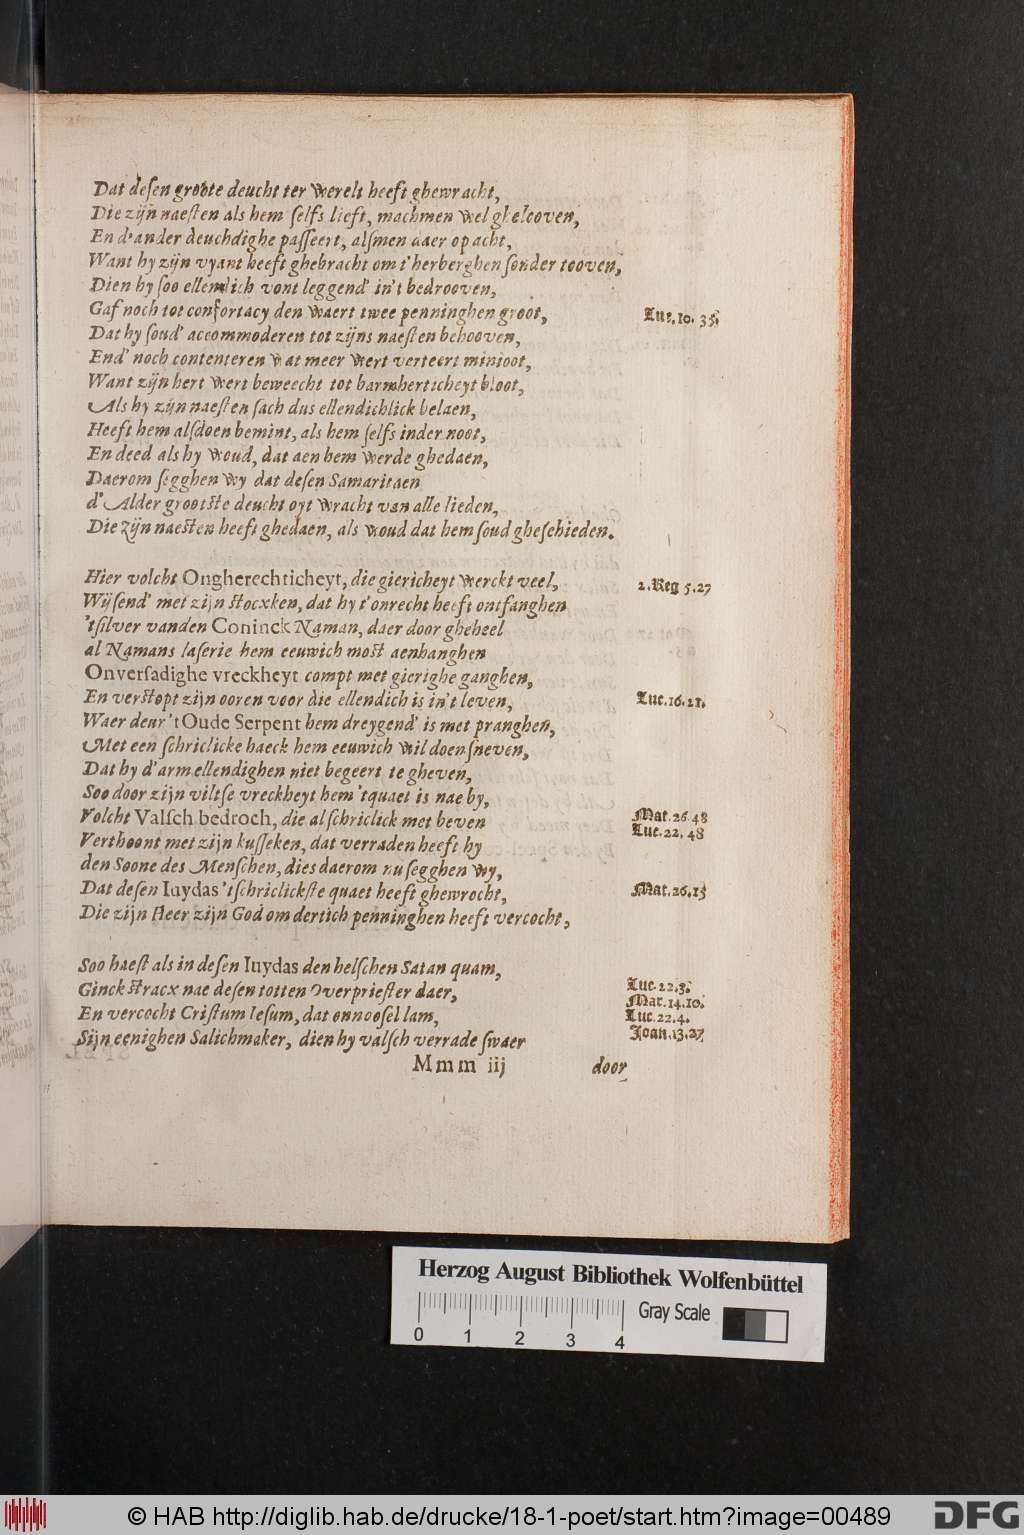 Dat desen groote deucht ter werelt heeft ghewracht,
Die zijn naesten als hem selfs lieft, machmen wel ghelooven,
En d'ander deuchdighe passeert, alsmen daer op acht,
Want hy zijn vyant heeft ghebracht om t'herberghen sonder tooven,
Dien hy soo ellendich vont leggend' in't bedrooven,
Gaf noch tot confortacy den waert twee penninghen groot,
Luc.10. 35.
Dat hy soud' accommoderen tot zijns naesten behooven,
End' noch contenteren wat meer wert verteert minioot,
Want zijn hert wert beweecht tot barmherticheyt bloot,
Als hy zijn naesten sach dus ellendichlick belaen,
Heeft hem alsdoen bemint, als hem selfs inder noot,
En deed als hy woud, dat aen hem werde ghedaen,
Daerom segghen wy dat desen Samaritaen
d'Alder grootste deucht oyt wracht van alle lieden,
Die zijn naesten heeft ghedaen, als woud dat hem soud gheschieden.
Hier volcht Ongherechticheyt, die giericheyt werckt veel,
2.Reg 5.27
Wijsend' met zijn stocxken, dat hy t'onrecht heeft ontfanghen
'tsilver vanden Coninck Naman, daer door gheheel
al Namans laserie hem eeuwich most aenhanghen
Onversadighe vreckheyt compt met gierighe ganghen,
En verstopt zijn ooren voor die ellendich is in't leven,
Luc.16.21.
Waer deur 't Oude Serpent hem dreygend' is met pranghen,
Met een schriclicke haeck hem eeuwich wil doen sneven,
Dat hy d'arm ellendighen niet begeert te gheven,
Soo door zijn viltse vreckheyt hem 'tquaet is nae by,
Volcht Valsch bedroch, die al schriclick met beven
Mat.26.48
Verthoont met zijn kusseken, dat verraden heeft hy
Luc.22.48
den Soone des Menschen, dies daerom nu segghen wy,
Dat desen Iuydas 'tschriclickste quaet heeft ghewrocht,
Mat.26.15
Die zijn Heer zijn God om dertich penninghen heeft vercocht,
Soo haest als in desen Iuydas den helschen Satan quam,
Luc.22.3.
Ginck stracx nae desen totten Overpriester daer,
Mar.14.10.
En vercocht Cristum Iesum, dat onnoosel lam,
Luc.22.4.
Sijn eenighen Salichmaker, dien hy valsch verrade swaer
Joan.13.27
Mmm iij door
Herzog August Bibliothek Wolfenbüttel
0 1 2 3 4 Gray Scale
© HAB http://diglib.hab.de/drucke/18-1-poet/start.htm?image=00489
DFG